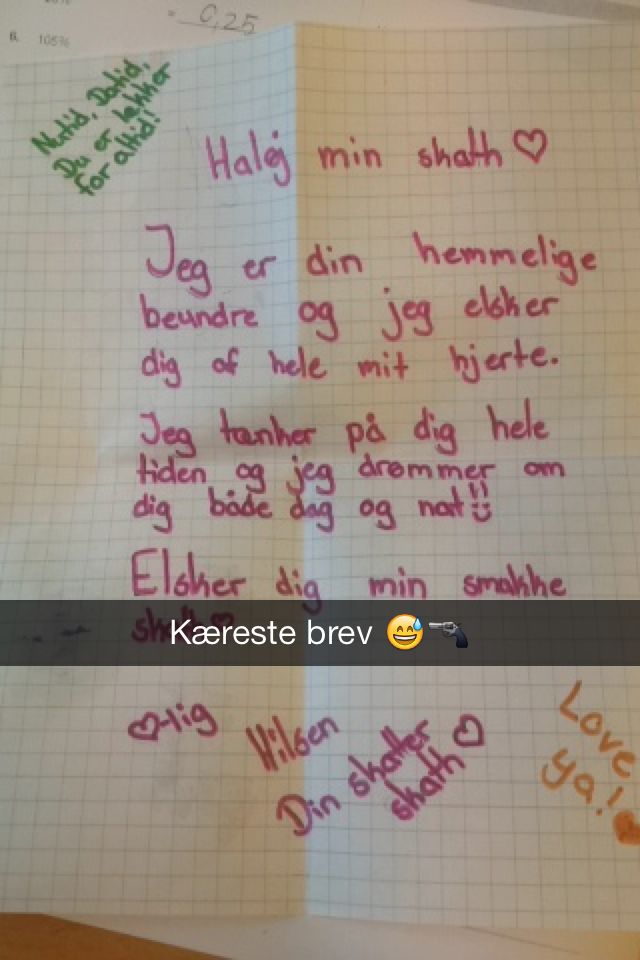 = 0,25
6. 105%
Nutid, Datid,
Du er lækker
for altid!
Haløj min skath ♡
Jeg er din hemmelige
beundre og jeg elsker
dig af hele mit hjerte.
Jeg tænker på dig hele
tiden og jeg drømmer om
dig både dag og nat!!
Elsker dig min smukke
Kæreste brev 😅🔫
♡-lig Hilsen
Din skatter
skath ♡
Love
ya!